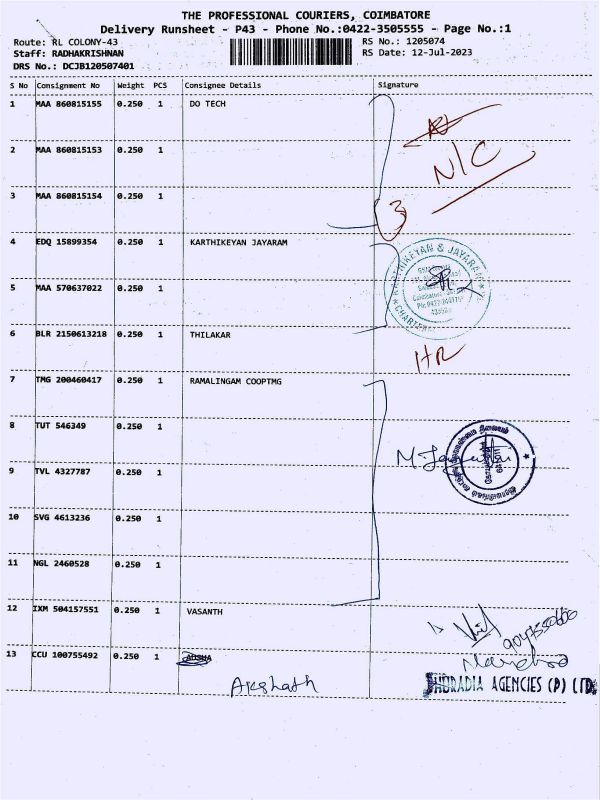 THE PROFESSIONAL COURIERS, COIMBATORE
Delivery Runsheet - P43 - Phone No.:0422-3505555 - Page No.:1
Route: RL COLONY-43 RS No.: 1205074
Staff: RADHAKRISHNAN RS Date: 12-Jul-2023
DRS No.: DCJB120507401
S No Consignment No Weight PCS Consignee Details Signature
1 MAA 860815155 0.250 1 DO TECH
2 MAA 860815153 0.250 1
N/C
3 MAA 860815154 0.250 1
3
4 EDQ 15899354 0.250 1 KARTHIKEYAN JAYARAM
KARTHIKEYAN & JAYARAM
5 MAA 570637022 0.250 1
6 BLR 2150613218 0.250 1 THILAKAR
HR
7 TMG 200460417 0.250 1 RAMALINGAM COOPTMG
8 TUT 546349 0.250 1
9 TVL 4327787 0.250 1
10 SVG 4613236 0.250 1
11 NGL 2460528 0.250 1
12 IXM 504157551 0.250 1 VASANTH
13 CCU 100755492 0.250 1
Akshath AGENCIES (P) LTD.